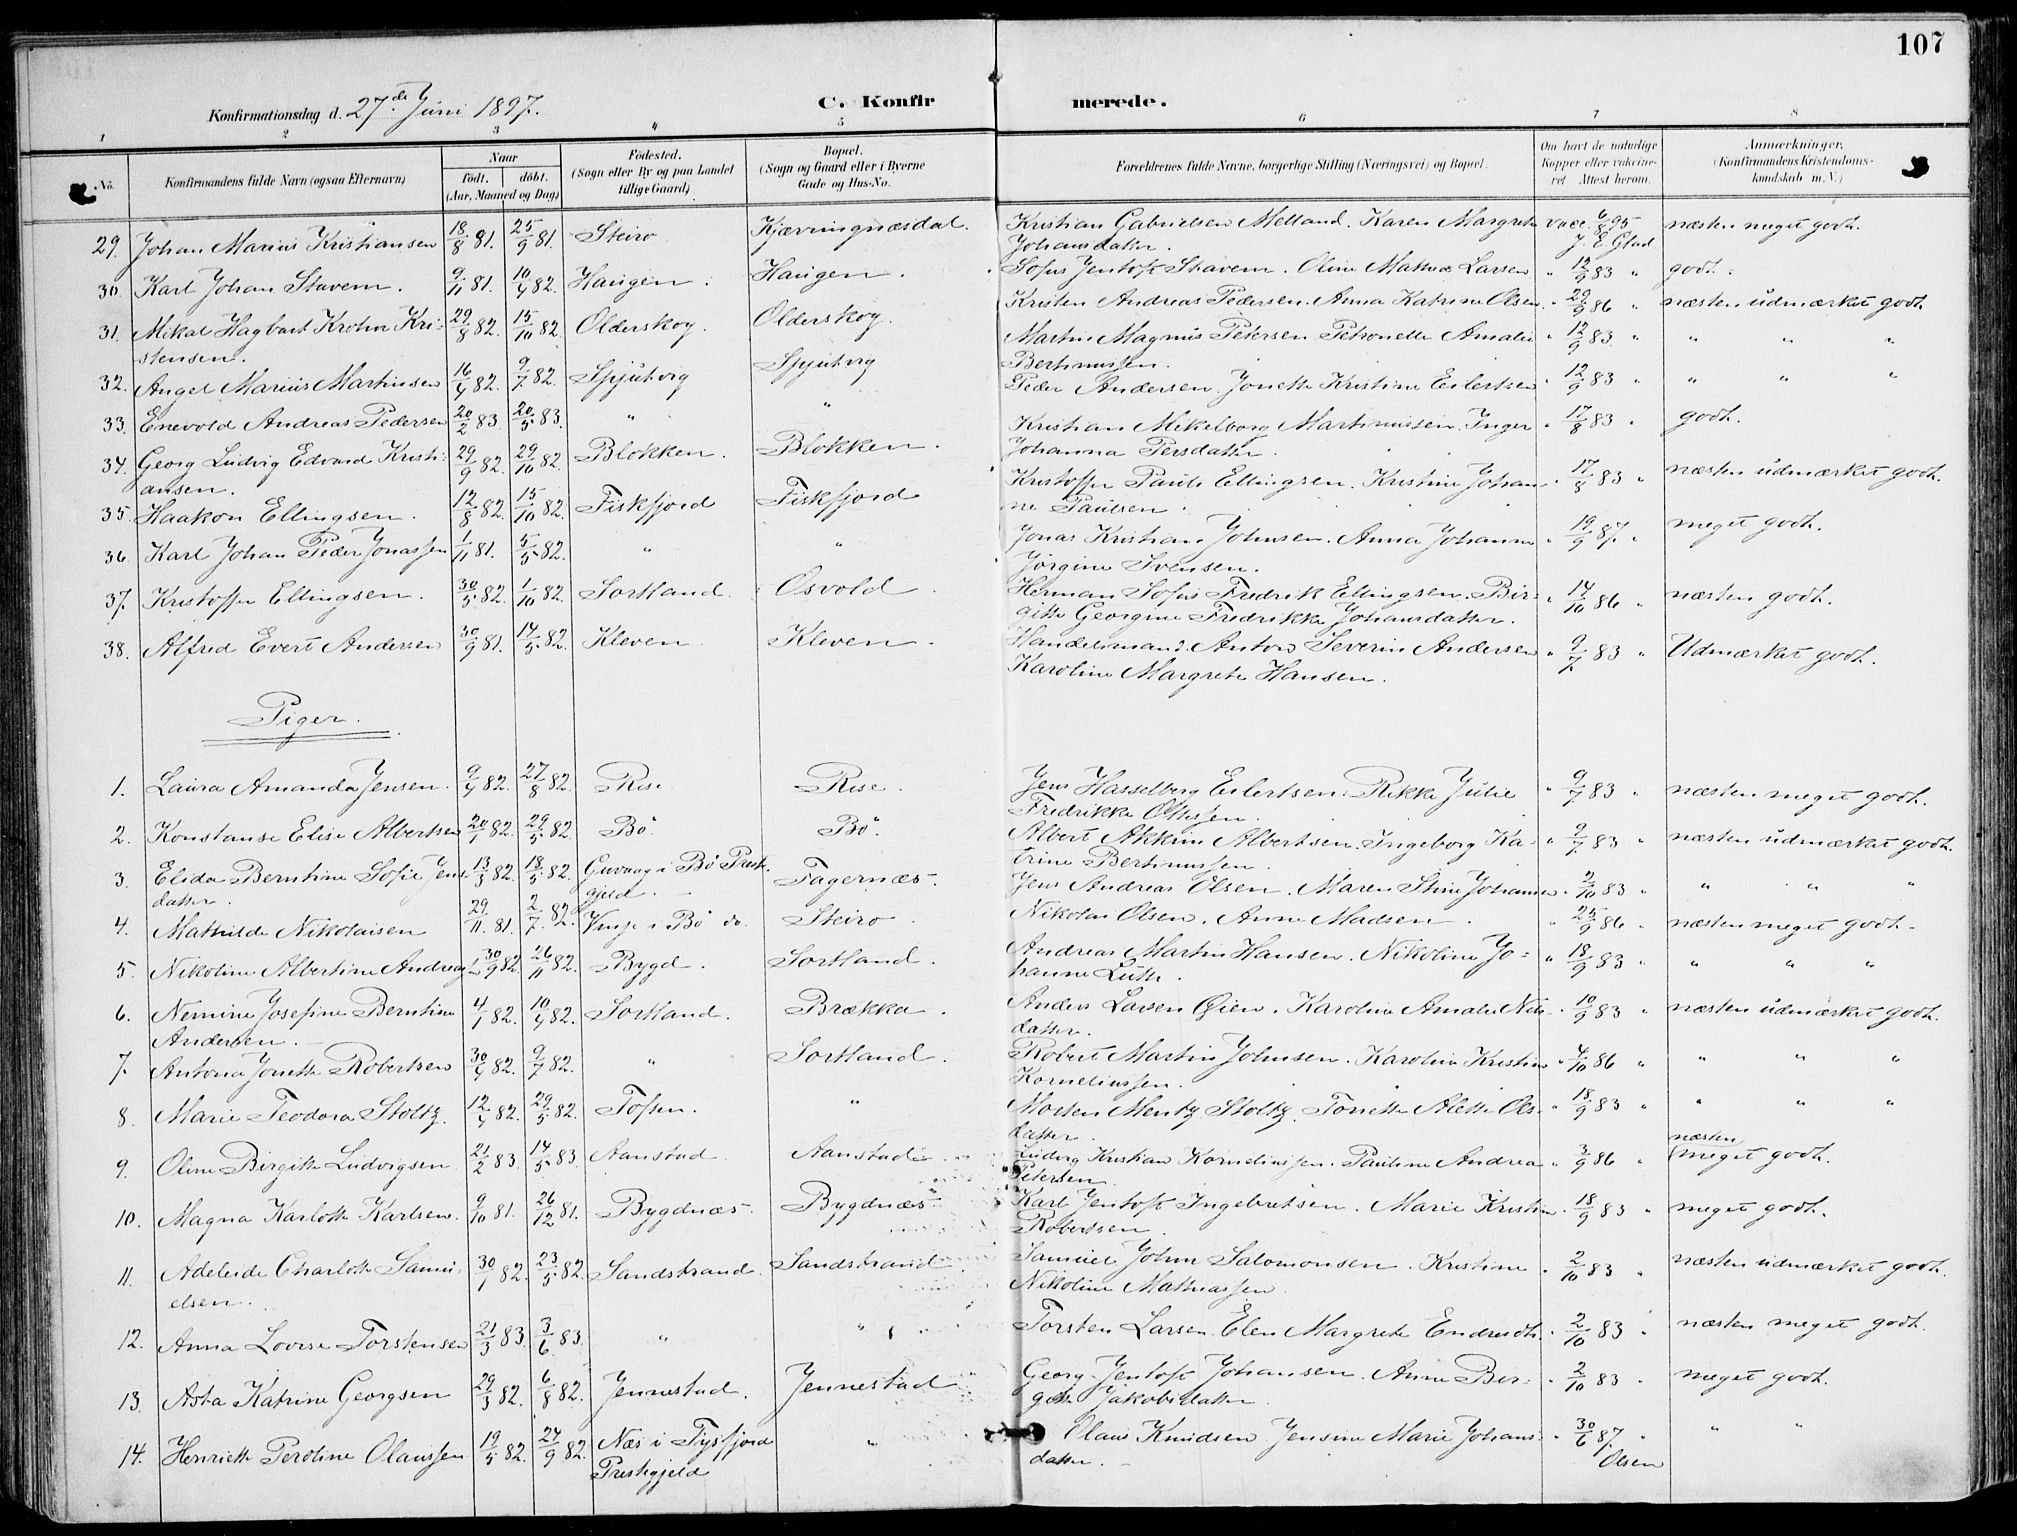 107
Konfirmationsdag d. 27de Juni 1897. C. Konfirmerede.
1 2 3 4 5 6 7 8
No. Konfirmandens fulde Navn (ogsaa Efternavn) Naar födt. döbt. (Aar, Maaned og Dag) Födested. (Sogn eller By og paa Landet tillige Gaard) Bopæl. (Sogn og Gaard eller i Byerne Gade og Hus-No. Forældrenes fulde Navne, borgerlige Stilling (Næringsvei) og Bopæl. Om havt de naturlige Kopper eller vaccineret Attest herom. Anmærkninger. (Konfirmandens Kristendomskundskab m. V.)
29. Johan Marius Kristiansen 18/8 81. 25/9 81. Steiro Kjærringnæsdal. Kristian Gabrielsen Melland. Karen Margrete vacc. 6/8 95 næsten meget godt.
Johansdatter. J. E. Glad
30. Karl Johan Stavem. 9/11 81. 10/4 82. Haugen. Haugen. Sofus Jentoft Stavem. Oline Mathea Larsen " 12/9 83 " godt.
31. Mikal Hagbart Krohn Kri- 29/8 82. 15/10 82. Olderskog. Olderskog. Kristen Andreas Pedersen. Anna Katrine Olsen. " 29/9 86 " næsten udmærket godt.
stensen.
32. Angel Marius Martinsen 16/4 82. 9/7 82. Spjutvig Spjutvig Martin Magnus Petersen Petronelle Amalie " 12/9 83. " " " "
Bertinussen.
33. Enevold Andreas Pedersen 20/2 83. 20/5 83. " " Peder Andersen. Jonette Kristine Eilertsen " 12/9 83 " " " "
34. Georg Ludvig Edvard Kristi- 29/9 82. 29/10 82. Blokken. Blokken. Kristian Mikelborg Martinussen. Inger " 17/8 83 " godt.
ansen. Johanna Persdatter.
35. Haakon Ellingsen. 12/8 82. 15/10 82. Fiskfjord Fiskfjord Kristoffer Pauls Ellingsen. Kristine Johan- " 17/8 83 " næsten udmærket godt.
ne Paulsen.
36. Karl Johan Peder Jonassen 1/11 81. 5/5 82. " " Jonas Kristian Johnsen. Anna Johanne " 19/9 87. " meget godt.
Jörgine Svensen.
37. Kristoffer Ellingsen. 30/5 82. 1/10 82. Sortland. Osvold. Herman Sofus Fredrik Ellingsen. Bir- " 14/10 86 " næsten godt.
gitte Georgine Fredrikke Johansdatter.
38. Alfred Evert Andersen 30/9 81. 14/5 82. Kleven. Kleven. Handelsmand. Anton Severin Andersen " 9/7 83 " Udmærket godt.
Karoline Margrete Hansen.
Piger.
1. Laura Amanda Jensen. 9/4 82. 27/8 82. Rise Rise. Jens Hasselberg Eilertsen. Rikke Julie " 9/7 83 " næsten meget godt.
Fredrikke Ottesen.
2. Konstanse Elise Albertsen 20/1 82. 29/5 82. Bö. Bö. Albert Akkim Albertsen. Ingeborg Ka- " 9/7 83 " næsten udmærket godt.
trine Bertinussen.
3. Elida Berntine Sofie Jens- 13/3 82. 18/5 82. Guvaag i Bö Prest- Fagernæs. Jens Andreas Olsen. Maren Stine Johansen " 2/10 83 " " " "
datter. gjeld.
4. Mathilde Nikolaisen 29/11 81. 2/7 82. Vinje i Bö do Steiro. Nikolai Olsen. Anne Madsen. " 25/9 86 " næsten meget godt.
5. Nikoline Albertine Andreas 30/9 82. 26/11 82. Bygd. Sortland. Andreas Martin Hansen. Nikoline Jo- " 18/9 83 " " " "
hanne Lütte.
6. Nemine Josefine Berntine 4/1 82. 10/4 82. Sortland. Brækka. Anders Larsen Øien. Karoline Amalie Nils- " 10/9 83 " næsten udmærket godt.
Andersen. datter.
7. Antona Jonette Robertsen 30/4 82. 9/7 82. " Sortland. Robert Martin Johnsen. Karoline Kristine " 4/10 86 " " " "
Korneliussen.
8. Marie Teodora Stoltz. 12/4 82. 29/5 82. Tofsen. " Morten Mentz Stoltz. Tonette Alette Ols- " 18/9 83 " " " "
datter.
9. Oline Birgitte Ludvigsen 21/2 83. 14/5 83. Aanstad. Aanstad. Ludvig Kristian Korneliussen. Pauline Andrea " 3/9 86 " næsten meget godt.
Petersen.
10. Magna Karlotte Karlsen. 9/10 81. 26/12 81. Bygdnæs. Bygdnæs. Karl Jentoft Ingebretsen. Marie Kristine " 18/9 83 " meget godt.
Robertsen.
11. Adeleide Charlotte Samu- 30/1 82. 23/5 82. Sandstrand. Sandstrand. Samuel Johan Salomonsen. Kristine " 2/10 83 " næsten udmærket godt.
elsen. Nikoline Mathiassen.
12. Anna Lovise Torstensen 21/3 83. 3/6 83. " " Torsten Larsen. Elen Margrete Endresdtr. " 2/10 83 " næsten meget godt.
13. Asta Katrine Georgsen 29/3 82. 6/8 82. Jennestad. Jennestad Georg Jentoft Johansen. Anne Bir- " 2/10 83 " meget godt.
gitte Jakobsdatter.
14. Henriette Peroline Olaussen 19/5 82. 24/9 82. Næs i Tysfjord " Olaus Knudsen. Jensine Marie Johans- " 30/6 87. " " "
Prestegjeld datter. Olsen